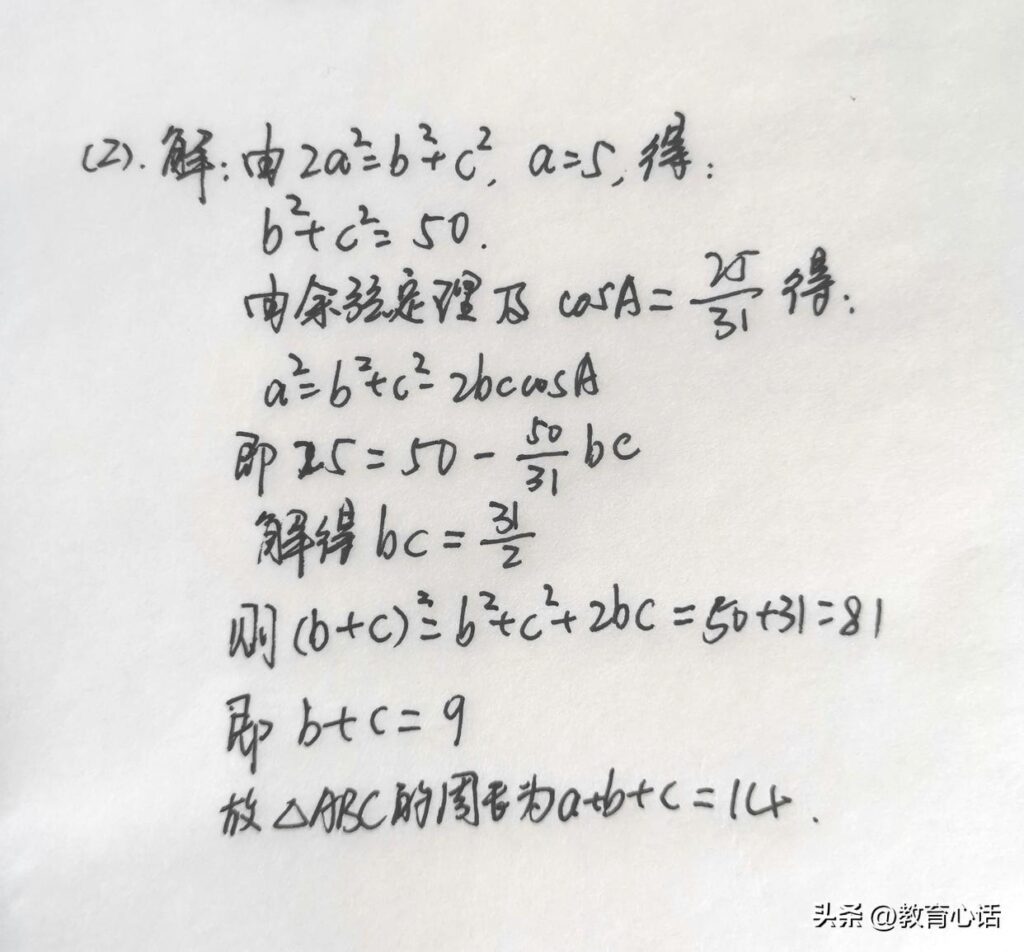 (2). 解: 由 2a²=b²+c², a=5, 得:
b²+c²=50.
由余弦定理及 cosA=25/31 得:
a²=b²+c²-2bccosA
即 25=50-50/31 bc
解得 bc=31/2
则 (b+c)²=b²+c²+2bc=50+31=81
即 b+c=9
故 △ABC的周长为a+b+c=14.
头条 @教育心话